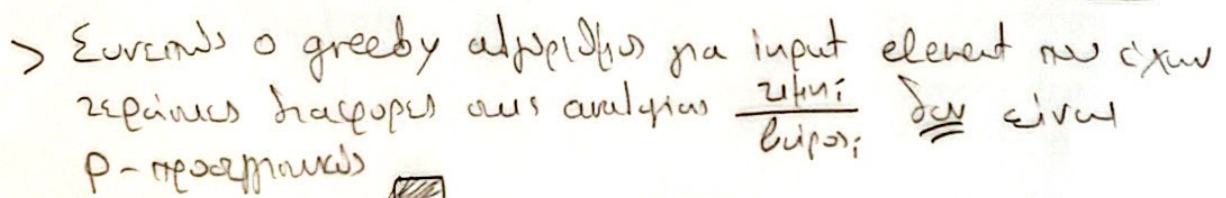 > Συνεπώς ο greedy αλγόριθμος για input element που έχουν
τεράστιες διαφορές στις αναλογίες τιμηᵢ/βάροςᵢ δεν είναι
ρ-προσεγγιστικός